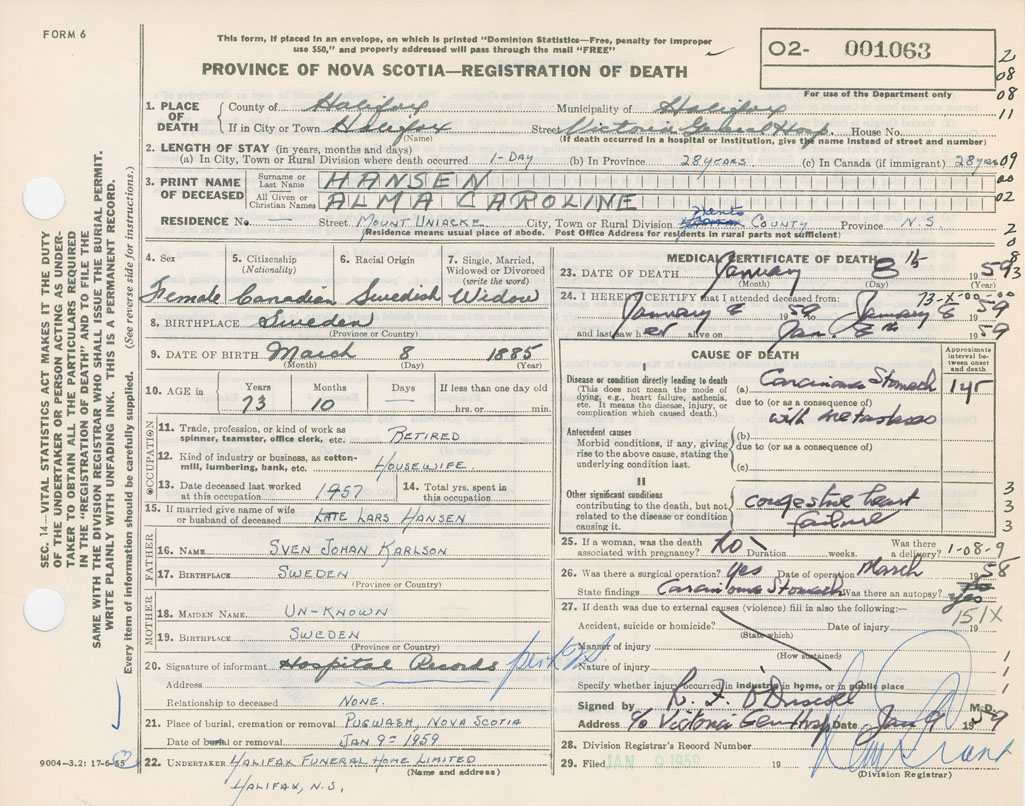 FORM 6
This form, if placed in an envelope, on which is printed "Dominion Statistics—Free, penalty for improper
use $50," and properly addressed will pass through the mail "FREE"
PROVINCE OF NOVA SCOTIA—REGISTRATION OF DEATH
02- 001063
For use of the Department only
2
08
08
11
1. PLACE OF DEATH
County of Halifax Municipality of Halifax
If in City or Town Halifax Street Victoria General Hosp. House No.
(Name) (If death occurred in a hospital or institution, give the name instead of street and number)
2. LENGTH OF STAY (in years, months and days)
(a) In City, Town or Rural Division where death occurred 1-DAY (b) In Province 28 YEARS (c) In Canada (if immigrant) 28 YRS 09
3. PRINT NAME OF DECEASED
Surname or Last Name HANSEN 00
All Given or Christian Names ALMA CAROLINE 02
RESIDENCE No. — Street MOUNT UNIACKE City, Town or Rural Division Hants COUNTY Province N.S
(Residence means usual place of abode. Post Office Address for residents in rural parts not sufficient)
2
0
8
3
4. Sex Female
5. Citizenship (Nationality) Canadian
6. Racial Origin Swedish
7. Single, Married, Widowed or Divorced (write the word) Widow
8. BIRTHPLACE Sweden
(Province or Country)
9. DATE OF BIRTH March 8 1885
(Month) (Day) (Year)
10. AGE in Years 73 Months 10 Days — If less than one day old hrs. or min.
OCCUPATION
11. Trade, profession, or kind of work as spinner, teamster, office clerk, etc. RETIRED
12. Kind of industry or business, as cotton-mill, lumbering, bank, etc. HOUSEWIFE
13. Date deceased last worked at this occupation 1957
14. Total yrs. spent in this occupation
15. If married give name of wife or husband of deceased LATE LARS HANSEN
FATHER
16. NAME SVEN JOHAN KARLSON
17. BIRTHPLACE SWEDEN
(Province or Country)
MOTHER
18. MAIDEN NAME UN-KNOWN
19. BIRTHPLACE SWEDEN
(Province or Country)
20. Signature of informant Hospital Records
Address
Relationship to deceased NONE.
21. Place of burial, cremation or removal PUGWASH, NOVA SCOTIA
Date of burial or removal JAN 9TH 1959
22. UNDERTAKER HALIFAX FUNERAL HOME LIMITED
(Name and address)
HALIFAX, N.S.
MEDICAL CERTIFICATE OF DEATH
23. DATE OF DEATH January 8th 1959
(Month) (Day) (Year)
73-X-00-00
24. I HEREBY CERTIFY that I attended deceased from:
January 8 1959 to January 8 1959
and last saw her alive on Jan. 8th 1959
CAUSE OF DEATH
Approximate interval between onset and death
I
Disease or condition directly leading to death
(This does not mean the mode of dying, e.g., heart failure, asthenia, etc. It means the disease, injury, or complication which caused death.)
(a) Carcinoma Stomach 1 yr
due to (or as a consequence of)
with metastases
Antecedent causes
Morbid conditions, if any, giving rise to the above cause, stating the underlying condition last.
(b)
due to (or as a consequence of)
(c)
II
Other significant conditions
contributing to the death, but not related to the disease or condition causing it.
congestive heart
failure
3
3
3
25. If a woman, was the death associated with pregnancy? No Duration weeks. Was there a delivery? 1-08-9
26. Was there a surgical operation? Yes Date of operation March 1958
State findings Carcinoma Stomach Was there an autopsy? yes
27. If death was due to external causes (violence) fill in also the following:— 151X
Accident, suicide or homicide? Date of injury 19
(State which)
Manner of injury 1
(How sustained)
Nature of injury 1
Specify whether injury occurred in industry, in home, or in public place 1
Signed by R. F. O'Driscoll M.D.
Address c/o Victoria Gen. Hosp Date Jan 9 1959
28. Division Registrar's Record Number
29. Filed JAN 9 1959 19
(Division Registrar)
SEC. 14—VITAL STATISTICS ACT MAKES IT THE DUTY
OF THE UNDERTAKER OR PERSON ACTING AS UNDER-
TAKER TO OBTAIN ALL THE PARTICULARS REQUIRED
IN THE "REGISTRATION OF DEATH" AND TO FILE THE
SAME WITH THE DIVISION REGISTRAR WHO SHALL ISSUE THE BURIAL PERMIT.
WRITE PLAINLY WITH UNFADING INK. THIS IS A PERMANENT RECORD.
Every item of information should be carefully supplied. (See reverse side for instructions.)
9004—3.2: 17-6-55